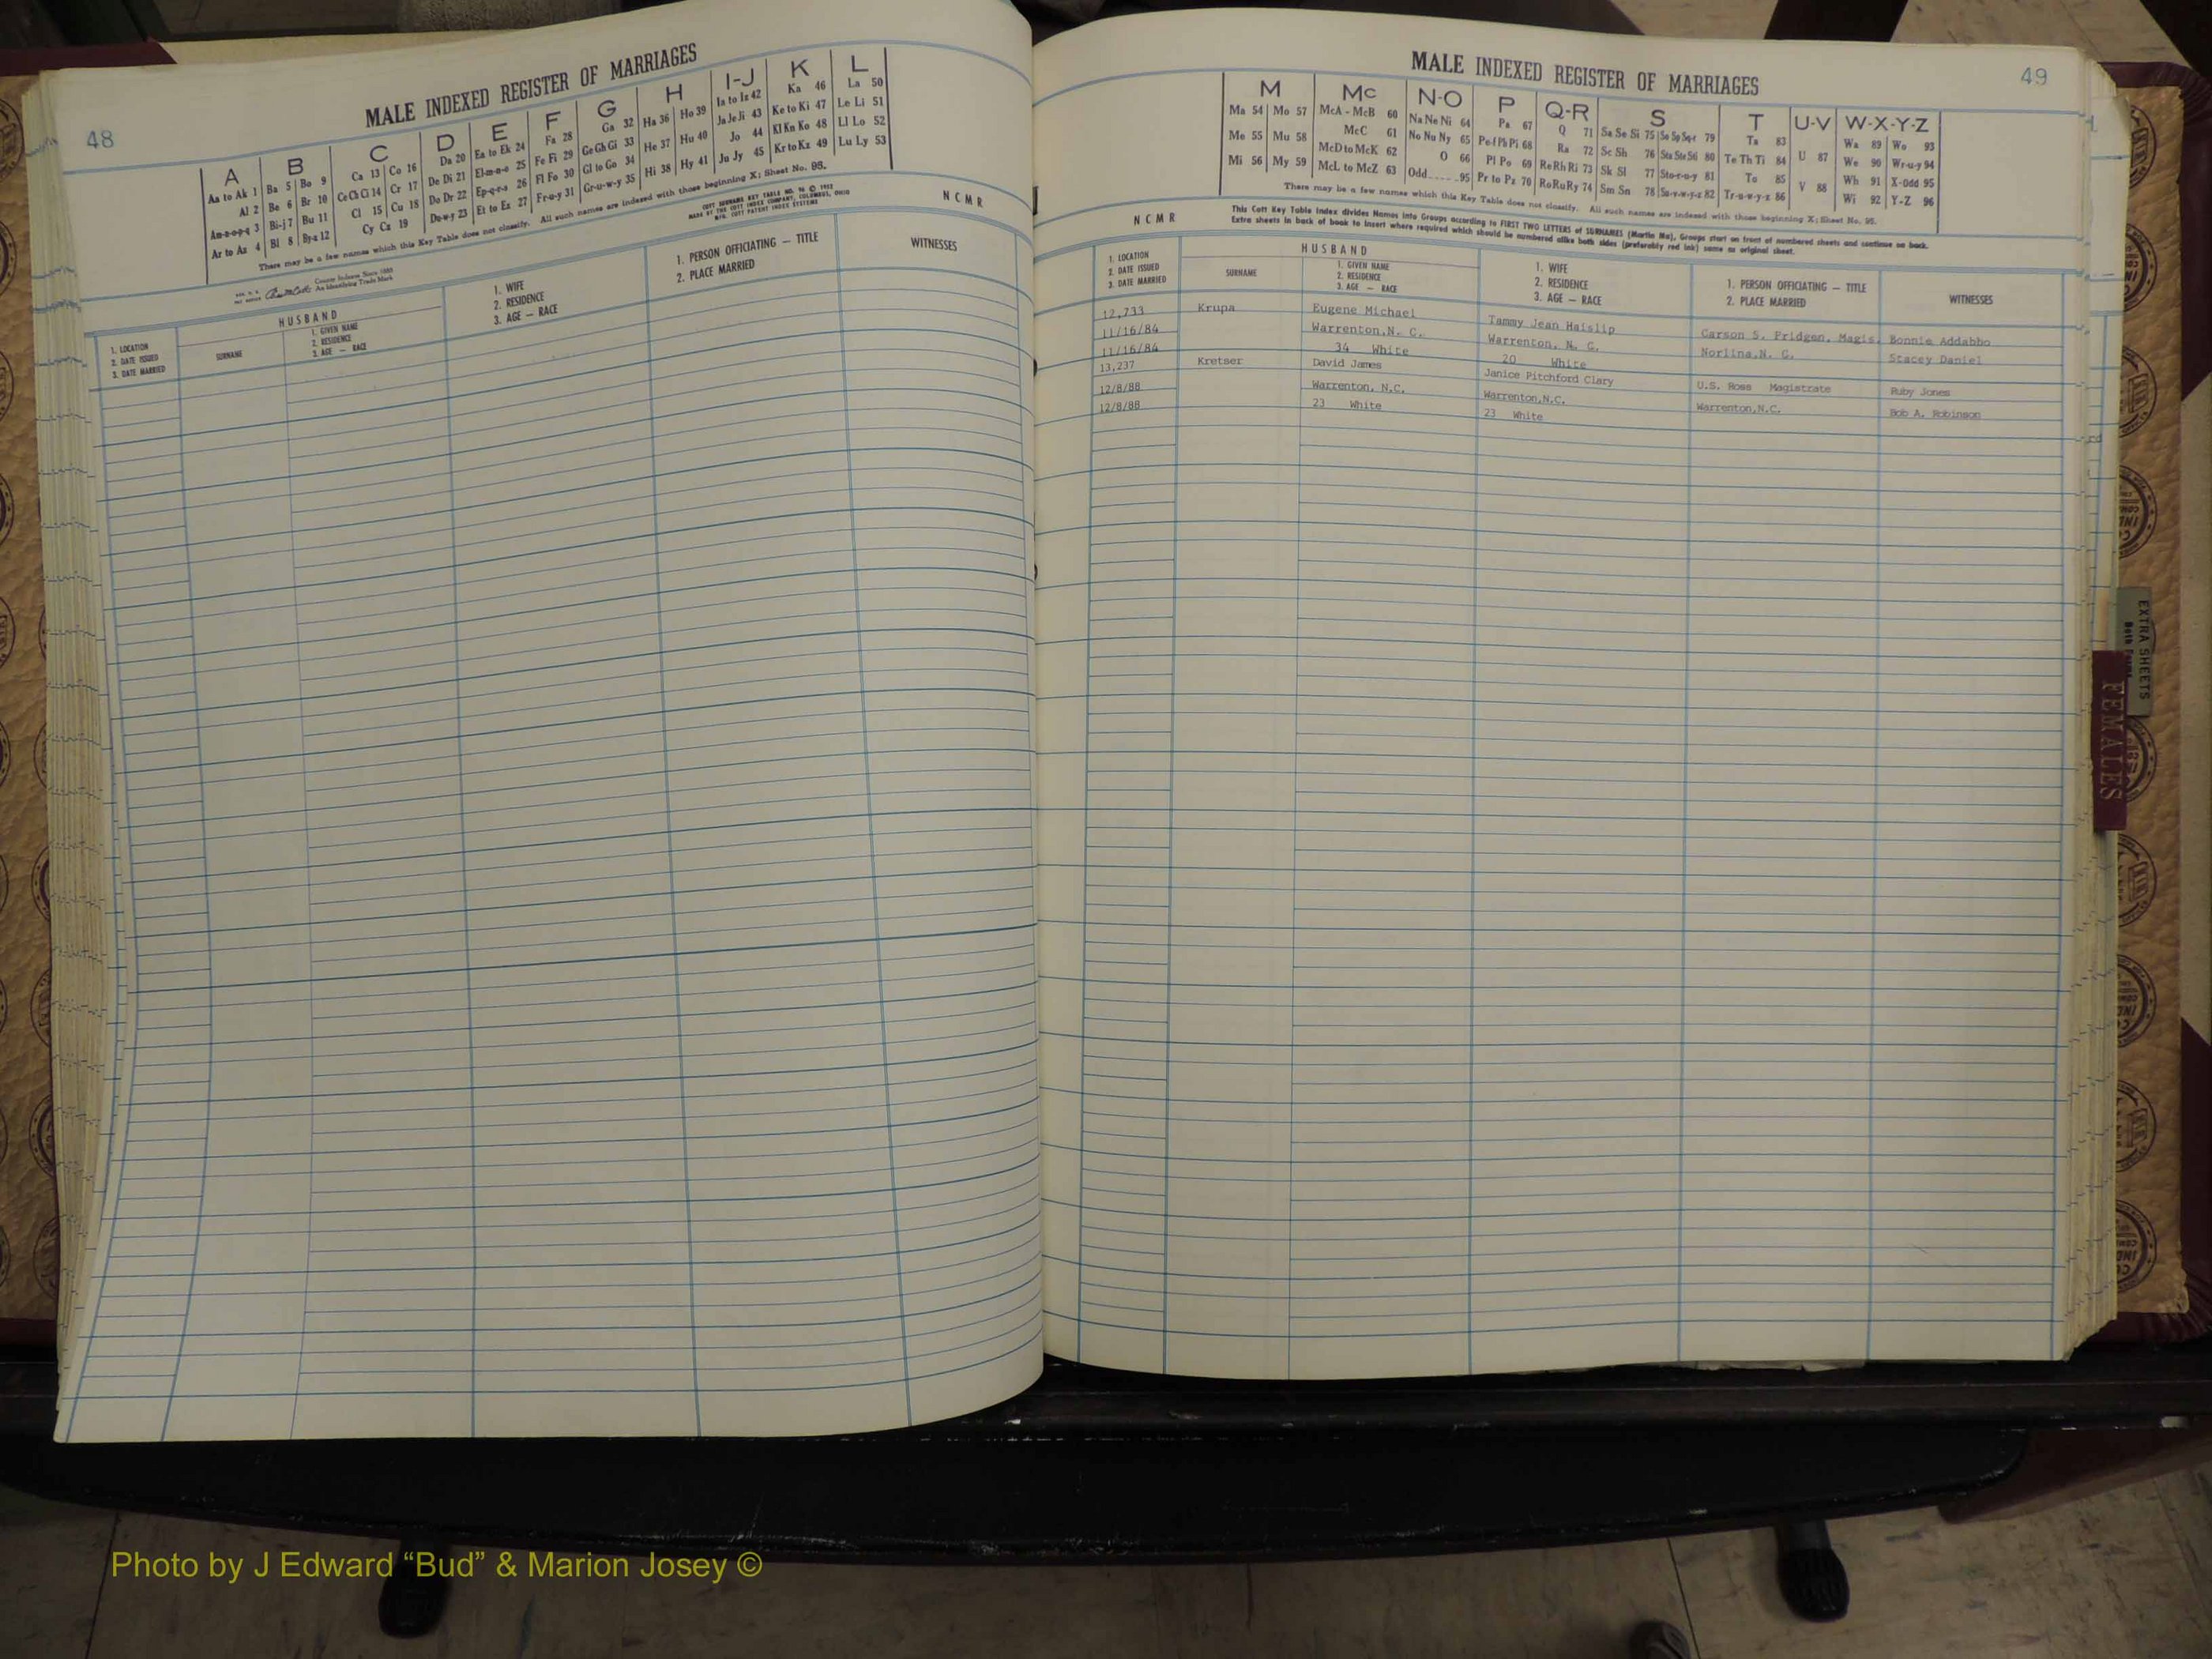 48
MALE INDEXED REGISTER OF MARRIAGES
A B C D E F G H I-J K L
Aa to Ak 1 Ba 5 Bo 9 Ca 13 Co 16 Da 20 Ea to Ek 24 Fa 28 Ga 32 Ha 36 Ho 39 Ia to Iz 42 Ka 46 La 50
Al 2 Be 6 Br 10 Ce Ch Ci 14 Cr 17 De Di 21 El-m-n-o 25 Fe Fi 29 Ge Gh Gi 33 He 37 Hu 40 Ja Je Ji 43 Ke to Ki 47 Le Li 51
Am-n-o-p-q 3 Bi-j 7 Bu 11 Cl 15 Cu 18 Do Dr 22 Ep-q-r-s 26 Fl Fo 30 Gl to Go 34 Hi 38 Hy 41 Jo 44 Kl Kn Ko 48 Ll Lo 52
Ar to Az 4 Bl 8 By-z 12 Cy Cz 19 Du-w-y 23 Et to Ez 27 Fr-u-y 31 Gr-u-w-y 35 Ju Jy 45 Kr to Kz 49 Lu Ly 53
There may be a few names which this Key Table does not classify. All such names are indexed with those beginning X; Sheet No. 95.
County Indexes Since 1888
An Identifying Trade Mark
COTT SURNAME KEY TABLE NO. 96 © 1952
MADE BY THE COTT INDEX COMPANY, COLUMBUS, OHIO
MFR. COTT PATENT INDEX SYSTEMS
N C M R
HUSBAND
1. LOCATION
2. DATE ISSUED
3. DATE MARRIED
SURNAME
1. GIVEN NAME
2. RESIDENCE
3. AGE — RACE
1. WIFE
2. RESIDENCE
3. AGE — RACE
1. PERSON OFFICIATING — TITLE
2. PLACE MARRIED
WITNESSES
MALE INDEXED REGISTER OF MARRIAGES
49
M Mc N-O P Q-R S T U-V W-X-Y-Z
Ma 54 Mo 57 McA - McB 60 Na Ne Ni 64 Pa 67 Q 71 Sa Se Si 75 So Sp Sq-r 79 Ta 83 U 87 Wa 89 Wo 93
Me 55 Mu 58 McC 61 No Nu Ny 65 Pe-f Ph Pi 68 Ra 72 Sc Sh 76 Sta Ste Sti 80 Te Th Ti 84 V 88 We 90 Wr-u-y 94
Mi 56 My 59 McD to McK 62 O 66 Pl Po 69 Re Rh Ri 73 Sk Sl 77 Sto-r-u-y 81 To 85 Wh 91 X-Odd 95
McL to McZ 63 Odd 95 Pr to Pz 70 Ro Ru Ry 74 Sm Sn 78 Su-v-w-y-z 82 Tr-u-w-y-z 86 Wi 92 Y-Z 96
There may be a few names which this Key Table does not classify. All such names are indexed with those beginning X; Sheet No. 95.
N C M R
This Cott Key Table Index divides Names into Groups according to FIRST TWO LETTERS of SURNAMES (Martin Ma), Groups start on front of numbered sheets and continue on back.
Extra sheets in back of book to insert where required which should be numbered alike both sides (preferably red ink) same as original sheet.
HUSBAND
1. LOCATION
2. DATE ISSUED
3. DATE MARRIED
SURNAME
1. GIVEN NAME
2. RESIDENCE
3. AGE — RACE
1. WIFE
2. RESIDENCE
3. AGE — RACE
1. PERSON OFFICIATING — TITLE
2. PLACE MARRIED
WITNESSES
12,733 Krupa Eugene Michael Tammy Jean Haislip Carson S. Pridgen, Magis. Bonnie Addabbo
11/16/84 Warrenton,N. C. Warrenton, N. C. Norlina,N. C. Stacey Daniel
11/16/84 34 White 20 White
13,237 Kretser David James Janice Pitchford Clary U.S. Ross Magistrate Ruby Jones
12/8/88 Warrenton, N.C. Warrenton,N.C. Warrenton,N.C. Bob A. Robinson
12/8/88 23 White 23 White
EXTRA SHEETS
FEMALES
Photo by J Edward “Bud” & Marion Josey ©